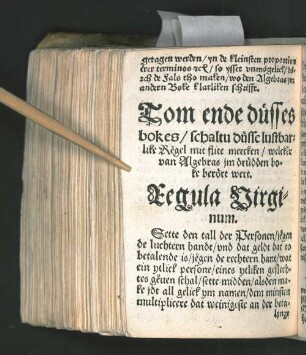 getagen werden / yn de kleinsten proportien
erer terminos ꝛc̃ / so ysset vnmögelick / dö
rch de Fals tho maken / wo den Algebras ym
andern Boke klarliken schrifft.
Tom ende düsses
bokes / schaltu düsse lustbar-
like Regel mit flite mercken / welcke
van Algebras jm drüdden bo-
ke berört wert.
Regula Virgi-
num.
Sette den tall der Personen / jegen
de luchtern handt / vnd dat geldt dat to
betalende is / jegen de rechtern hant / wat
ein ytlick persone / eines ytliken geslech-
tes geuen schal / sette midden / alsden ma-
ke jdt all gelick ym namen / dem minsten
multiplicere dat weinigiste an der beta-
lynge